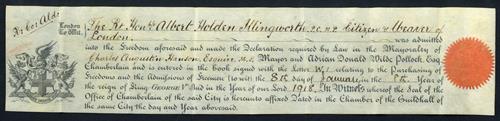 London
To Wit.
The Rt. Honble. Albert Holden Illingworth, P.C. M.P. Citizen & Weaver of
London. was admitted
into the Freedom aforesaid and made the Declaration required by Law in the Mayoralty of
Charles Augustin Hanson, Esquire, M.P. Mayor and Adrian Donald Wilde Pollock, Esq.
Chamberlain and is entered in the book signed with the Letter W.1 relating to the Purchasing of
Freedoms and the Admissions of Freemen (to wit) the 8th day of January in the 8th Year of
the reign of King George V And in the Year of our Lord 1918. In Witness whereof the Seal of the
Office of Chamberlain of the said City is hereunto affixed Dated in the Chamber of the Guildhall
of the same City the day and Year abovesaid.